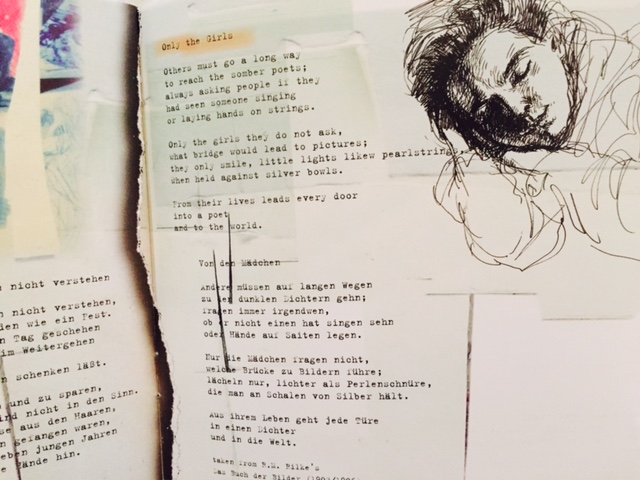 n nicht verstehen
n nicht verstehen,
den wie ein Fest.
n Tag geschehen
im Weitergehen
n schenken läßt.
und zu sparen,
ind nicht in den Sinn.
se aus den Haaren,
n gefangen waren,
eben jungen Jahren
e Hände hin.
Only the Girls
Others must go a long way
to reach the somber poets;
always asking people if they
had seen someone singing
or laying hands on strings.
Only the girls they do not ask,
what bridge would lead to pictures;
they only smile, little lights likew pearlstrings,
when held against silver bowls.
From their lives leads every door
into a poet
and to the world.
Von den Mädchen
Andere müssen auf langen Wegen
zu den dunklen Dichtern gehn;
fragen immer irgendwen,
ob er nicht einen hat singen sehn
oder Hände auf Saiten legen.
Nur die Mädchen fragen nicht,
welche Brücke zu Bildern führe;
lächeln nur, lichter als Perlenschnüre,
die man an Schalen von Silber hält.
Aus ihrem Leben geht jede Türe
in einen Dichter
und in die Welt.
taken from R.M. Rilke's
Das Buch der Bilder